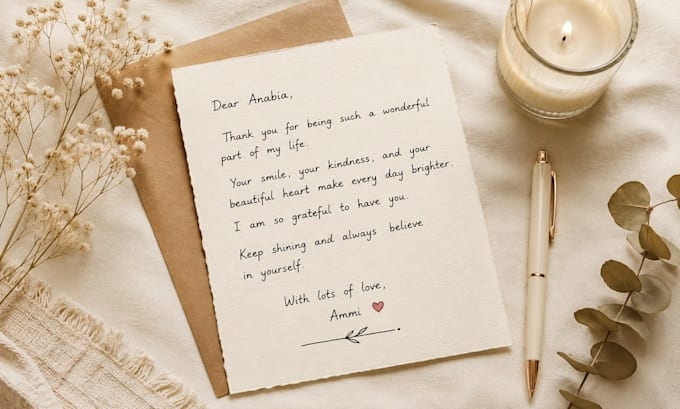 Dear Anabia,
Thank you for being such a wonderful
part of my life.
Your smile, your kindness, and your
beautiful heart make every day brighter.
I am so grateful to have you.
Keep shining and always believe
in yourself.
With lots of love,
Ammi